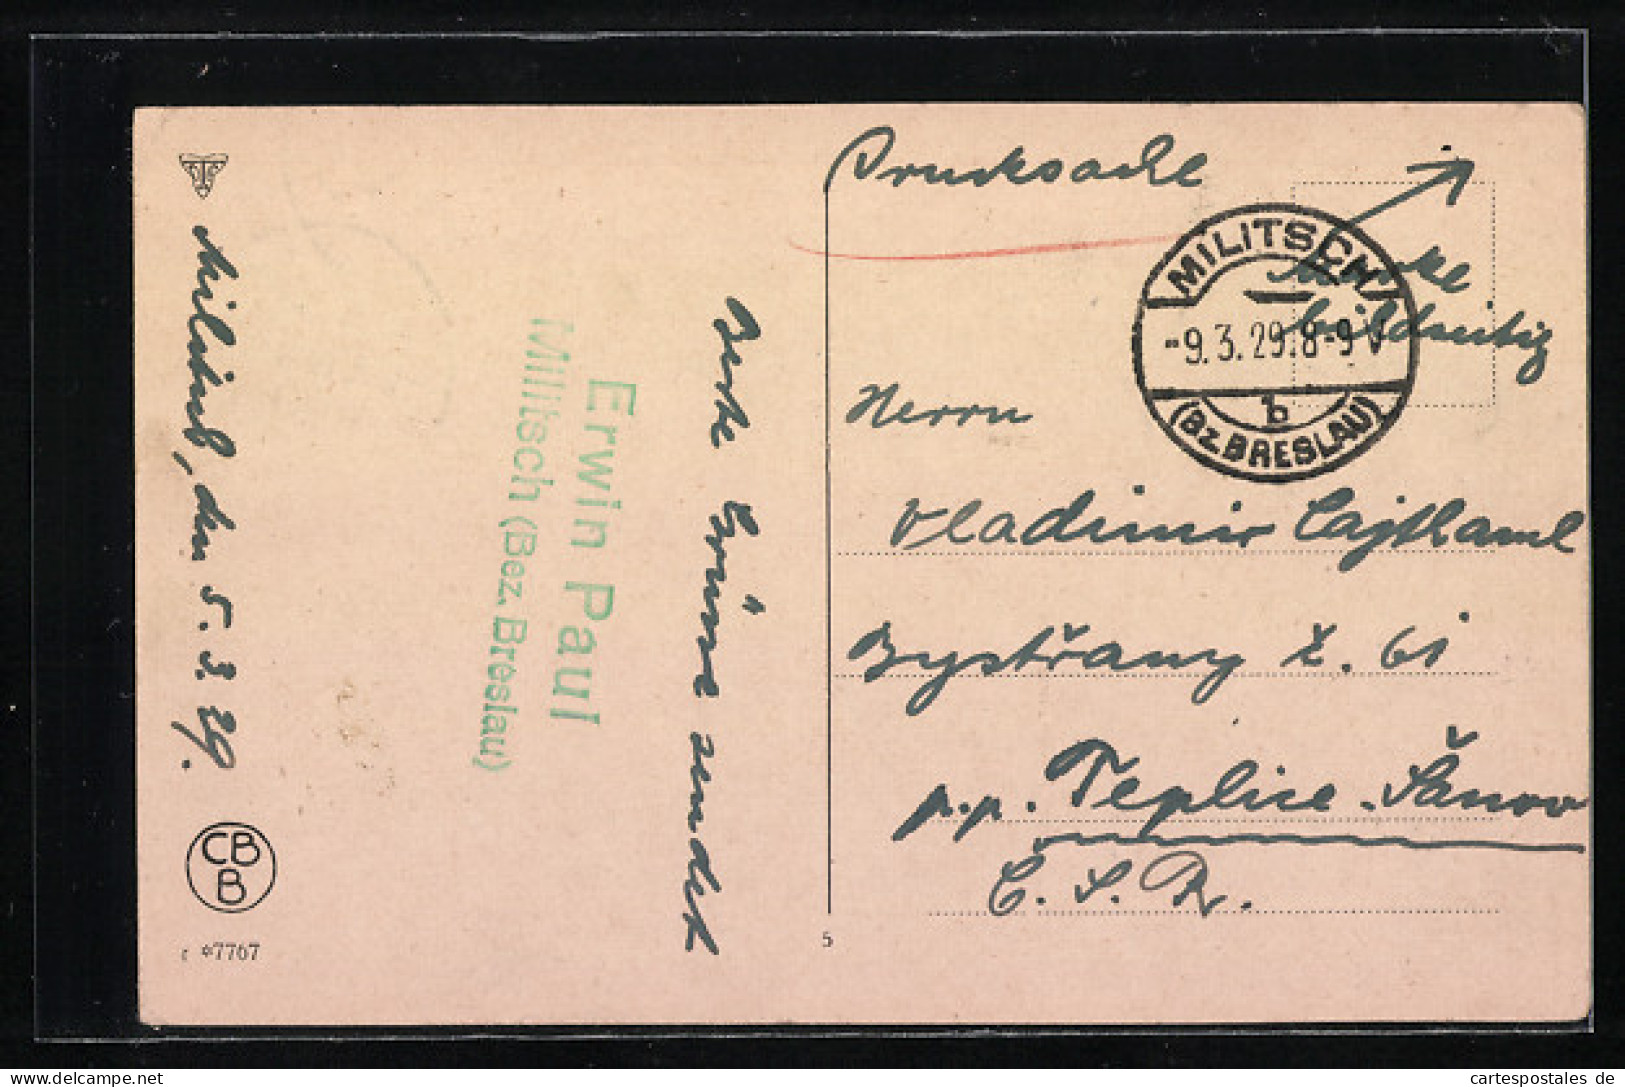 Drucksache
Marke
bildseitig
MILITSCH
-9.3.29.8-9 V
b
(Bz. BRESLAU)
Herrn
Vladimir Cajthaml
Bystřany č. 61
p.p. Teplice-Šanov
Č.S.R.
Militsch, den 5. 3. 29.
Beste Grüsse sendet
Erwin Paul
Militsch (Bez. Breslau)
CB
B
*7767
5
cartespostales de